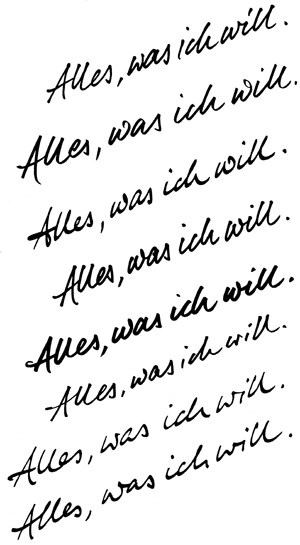 Alles, was ich will.
Alles, was ich will.
Alles, was ich will.
Alles, was ich will.
Alles, was ich will.
Alles, was ich will.
Alles, was ich will.
Alles, was ich will.